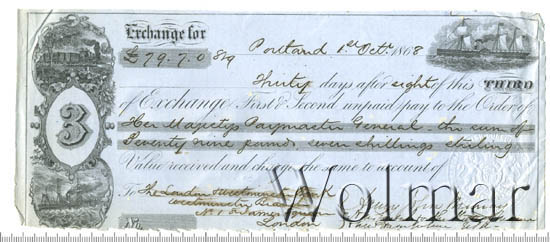 Exchange for
£79.7.0 Stg Portland 1st Octr. 1868
Thirty days after sight of this THIRD
of Exchange First & Second unpaid pay to the Order of
Her Majestys Paymaster General - the sum of
Seventy nine pounds, seven shillings sterling
3
Value received and charge the same to account of
To The London & Westminster Bank
Westminster Branch
No. 1 St James Square
London
Wolmar